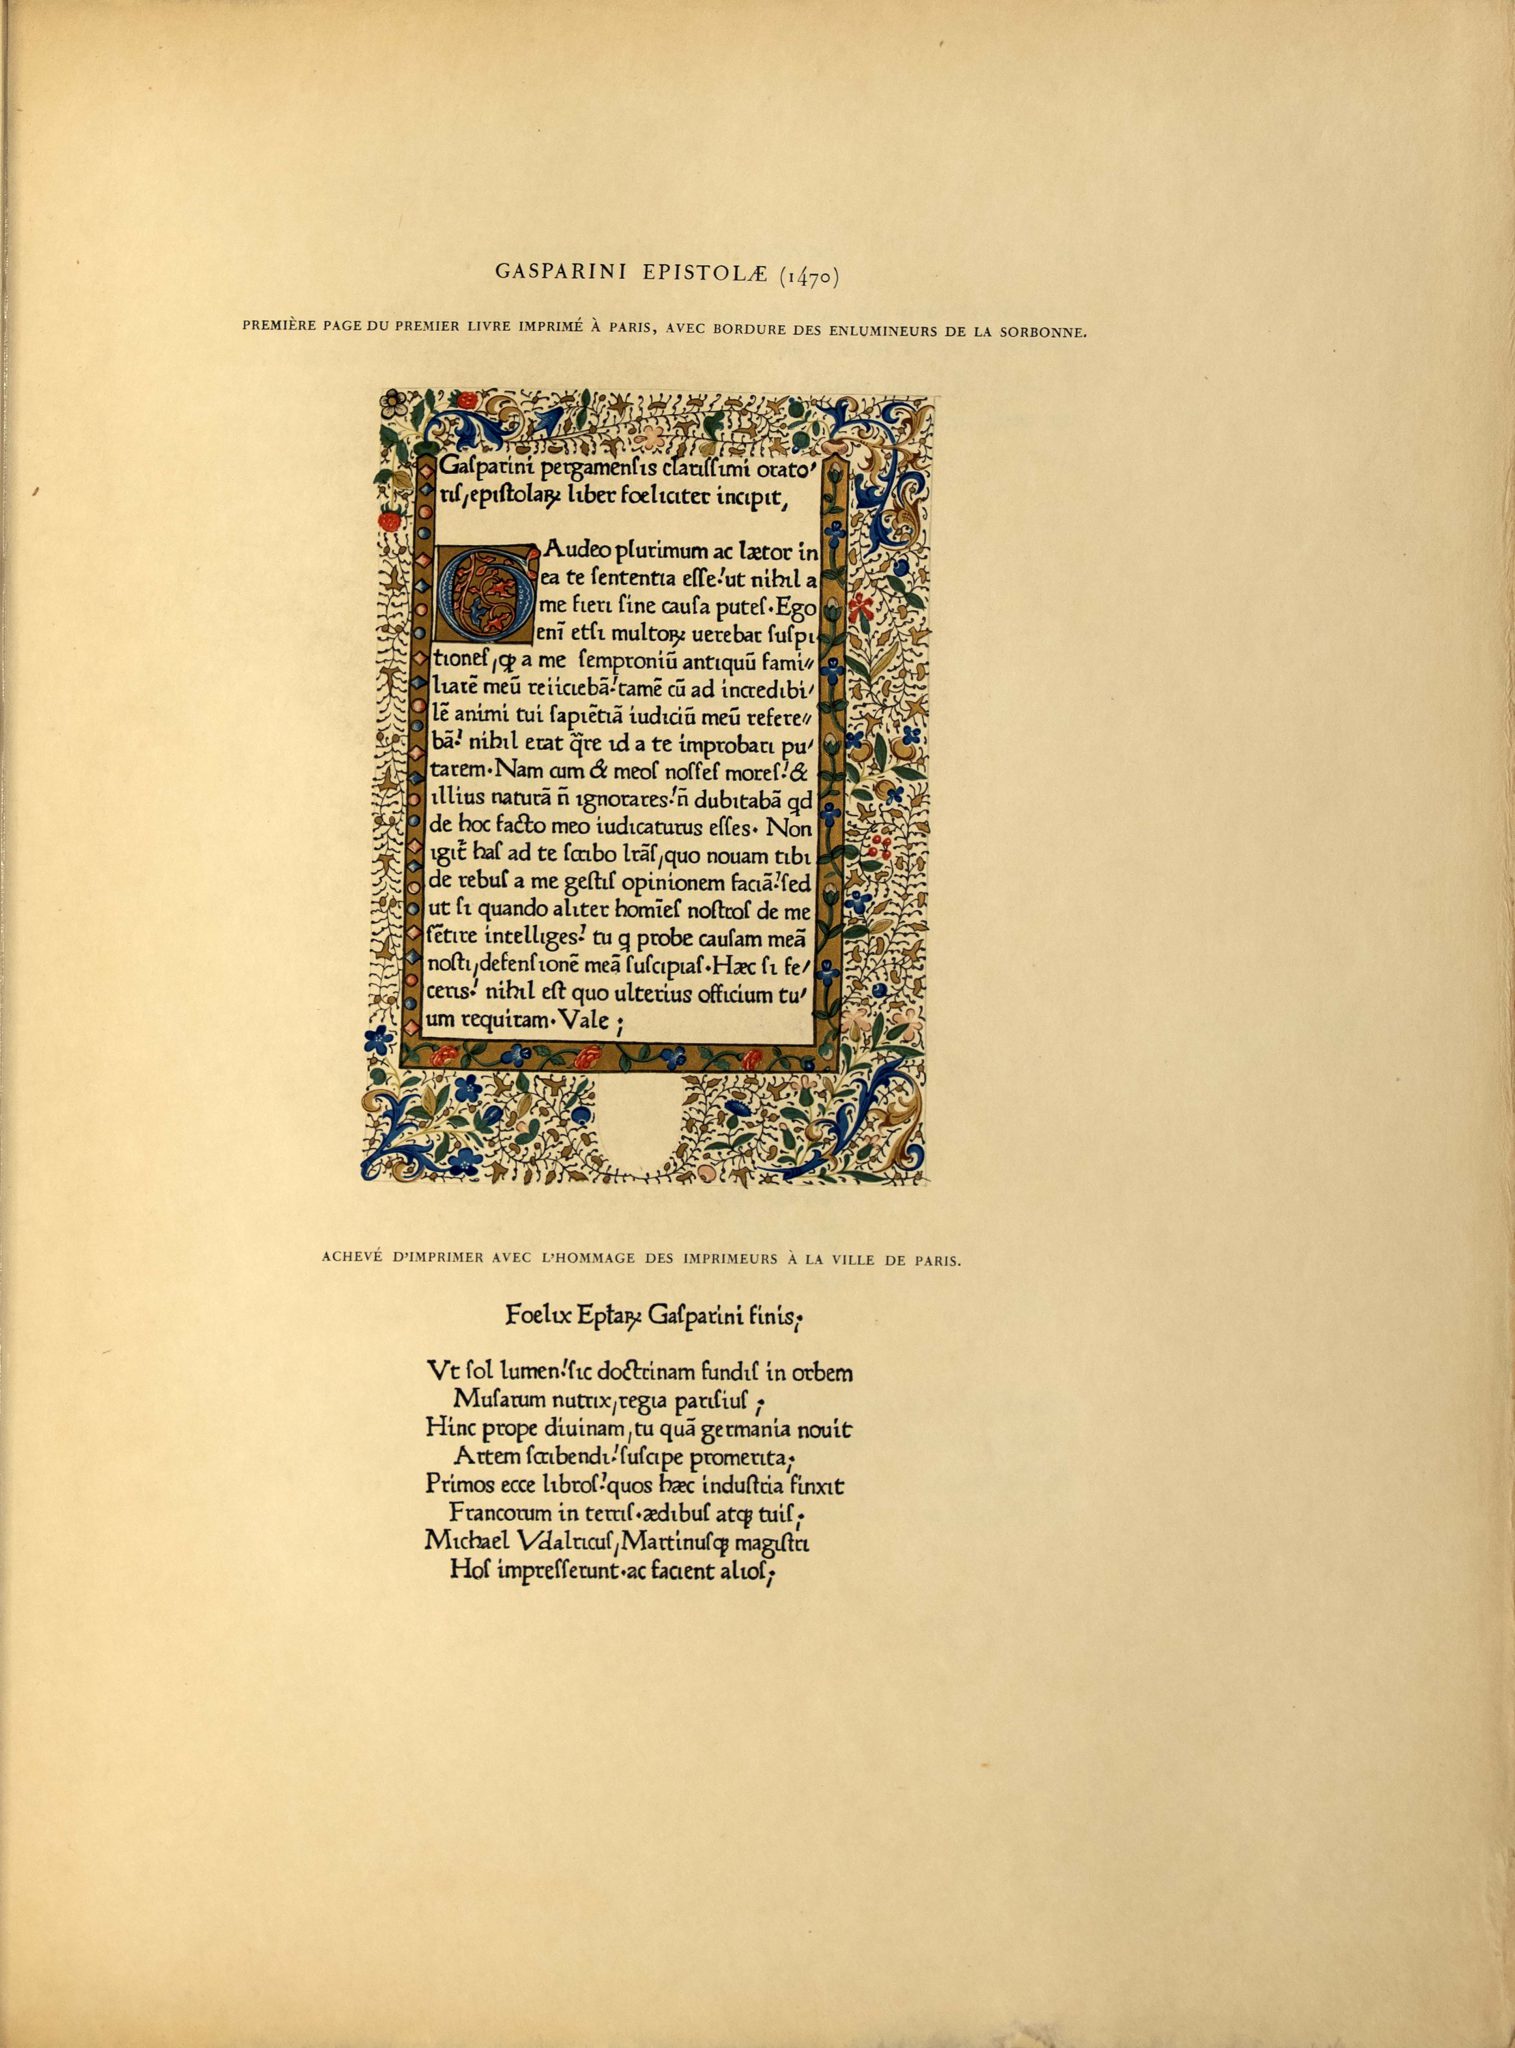 GASPARINI EPISTOLÆ (1470)
PREMIÈRE PAGE DU PREMIER LIVRE IMPRIMÉ À PARIS, AVEC BORDURE DES ENLUMINEURS DE LA SORBONNE.
Gaſparini pergamenſis clariſſimi orato/
riſ, epiſtolaꝝ liber foeliciter incipit,
GAudeo plurimum ac lætor in
ea te ſententia eſſe! ut nihil a
me fieri ſine cauſa puteſ. Ego
enī etſi multoꝝ uerebar ſuſpi
tioneſ, ꝙ a me ſemproniū antiquū fami//
liarē meū reiiciebā! tamē cū ad incredibi/
lē animi tui ſapiētiā iudiciū meū refere//
bā! nihil erat q̄re id a te improbari pu/
tarem. Nam cum & meoſ noſſeſ moreſ! &
illius naturā n̄ ignorares! n̄ dubitabā qd
de hoc facto meo iudicaturus eſſes. Non
igit᷑ haſ ad te ſcribo lr̄aſ, quo nouam tibi
de rebuſ a me geſtiſ opinionem faciā! ſed
ut ſi quando aliter homīeſ noſtroſ de me
ſētire intelliges! tu q probe cauſam meā
noſti, defenſionē meā ſuſcipiaſ. Hæc ſi fe/
ceris! nihil eſt quo ulterius officium tu/
um requiram. Vale ;
ACHEVÉ D'IMPRIMER AVEC L'HOMMAGE DES IMPRIMEURS À LA VILLE DE PARIS.
Foelix Epꝉaꝝ Gaſparini finis;
Vt ſol lumen! ſic doctrinam fundiſ in orbem
Muſarum nutrix, regia pariſiuſ ;
Hinc prope diuinam, tu quā germania nouit
Artem ſcribendi! ſuſcipe promerita;
Primos ecce libroſ! quos hæc induſtria finxit
Francorum in terriſ. ædibuſ atqꝫ tuiſ;
Michael Vdalricuſ, Martinuſqꝫ magiſtri
Hoſ impreſſerunt. ac facient alioſ;